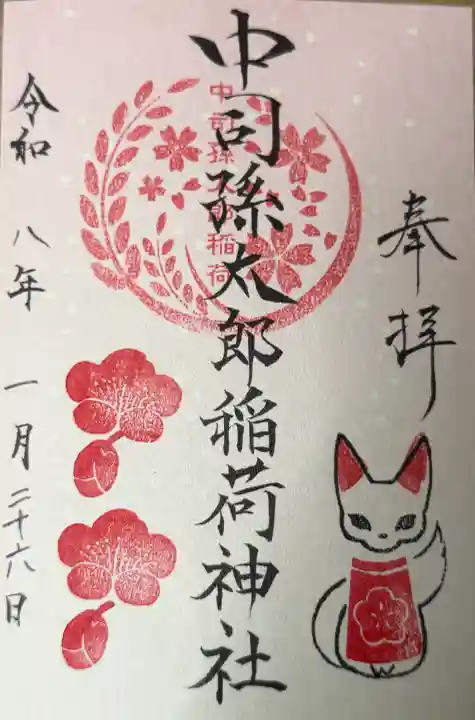 奉拝
中司孫太郎稲荷神社
中司孫太郎稲荷
令和 八年 一月 二十六日